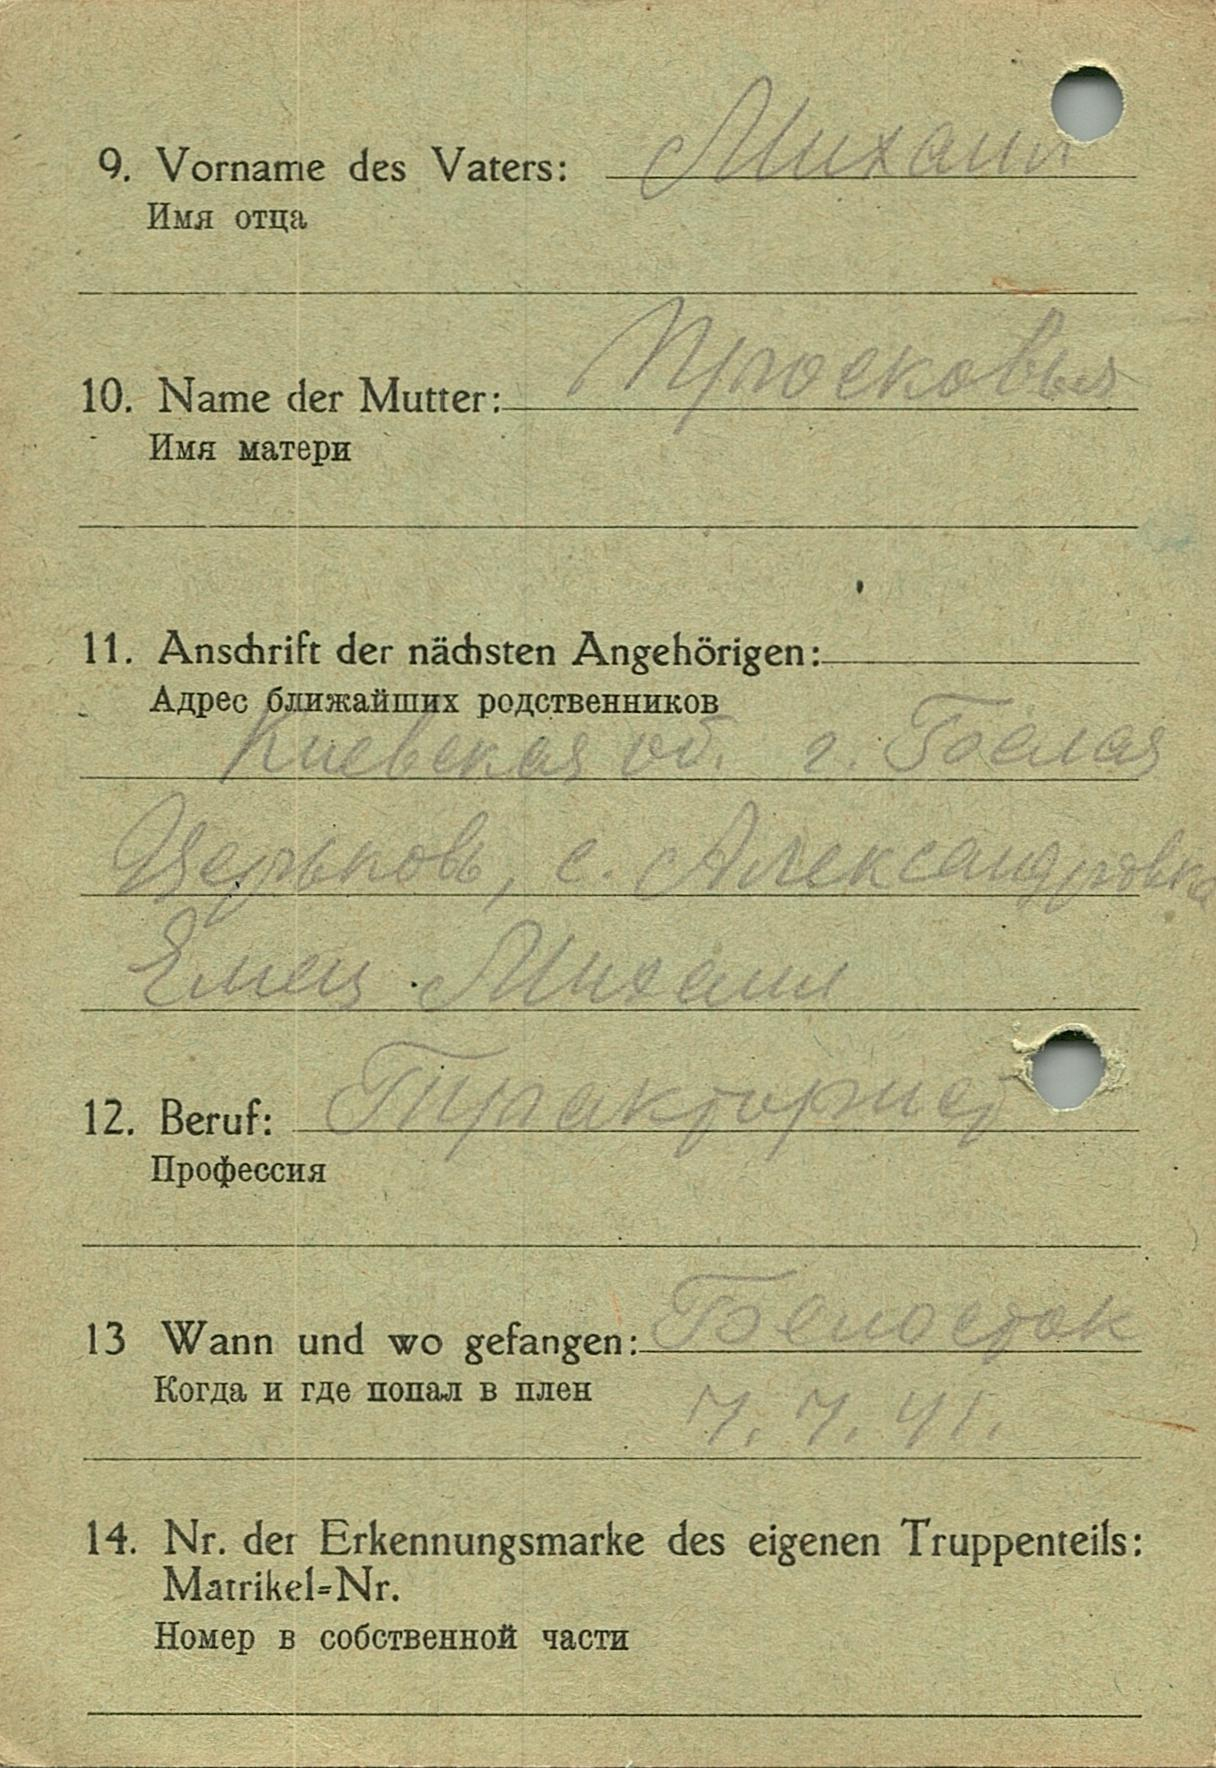 9. Vorname des Vaters: Михаил
Имя отца
10. Name der Mutter: Просковья
Имя матери
11. Anschrift der nächsten Angehörigen:
Адрес ближайших родственников
Киевская об. г. Белая
Церьковь, с. Александровка
Емец Михаил
12. Beruf: Тракторист
Профессия
13 Wann und wo gefangen: Белосток
Когда и где попал в плен
7. 7. 41.
14. Nr. der Erkennungsmarke des eigenen Truppenteils:
Matrikel=Nr.
Номер в собственной части